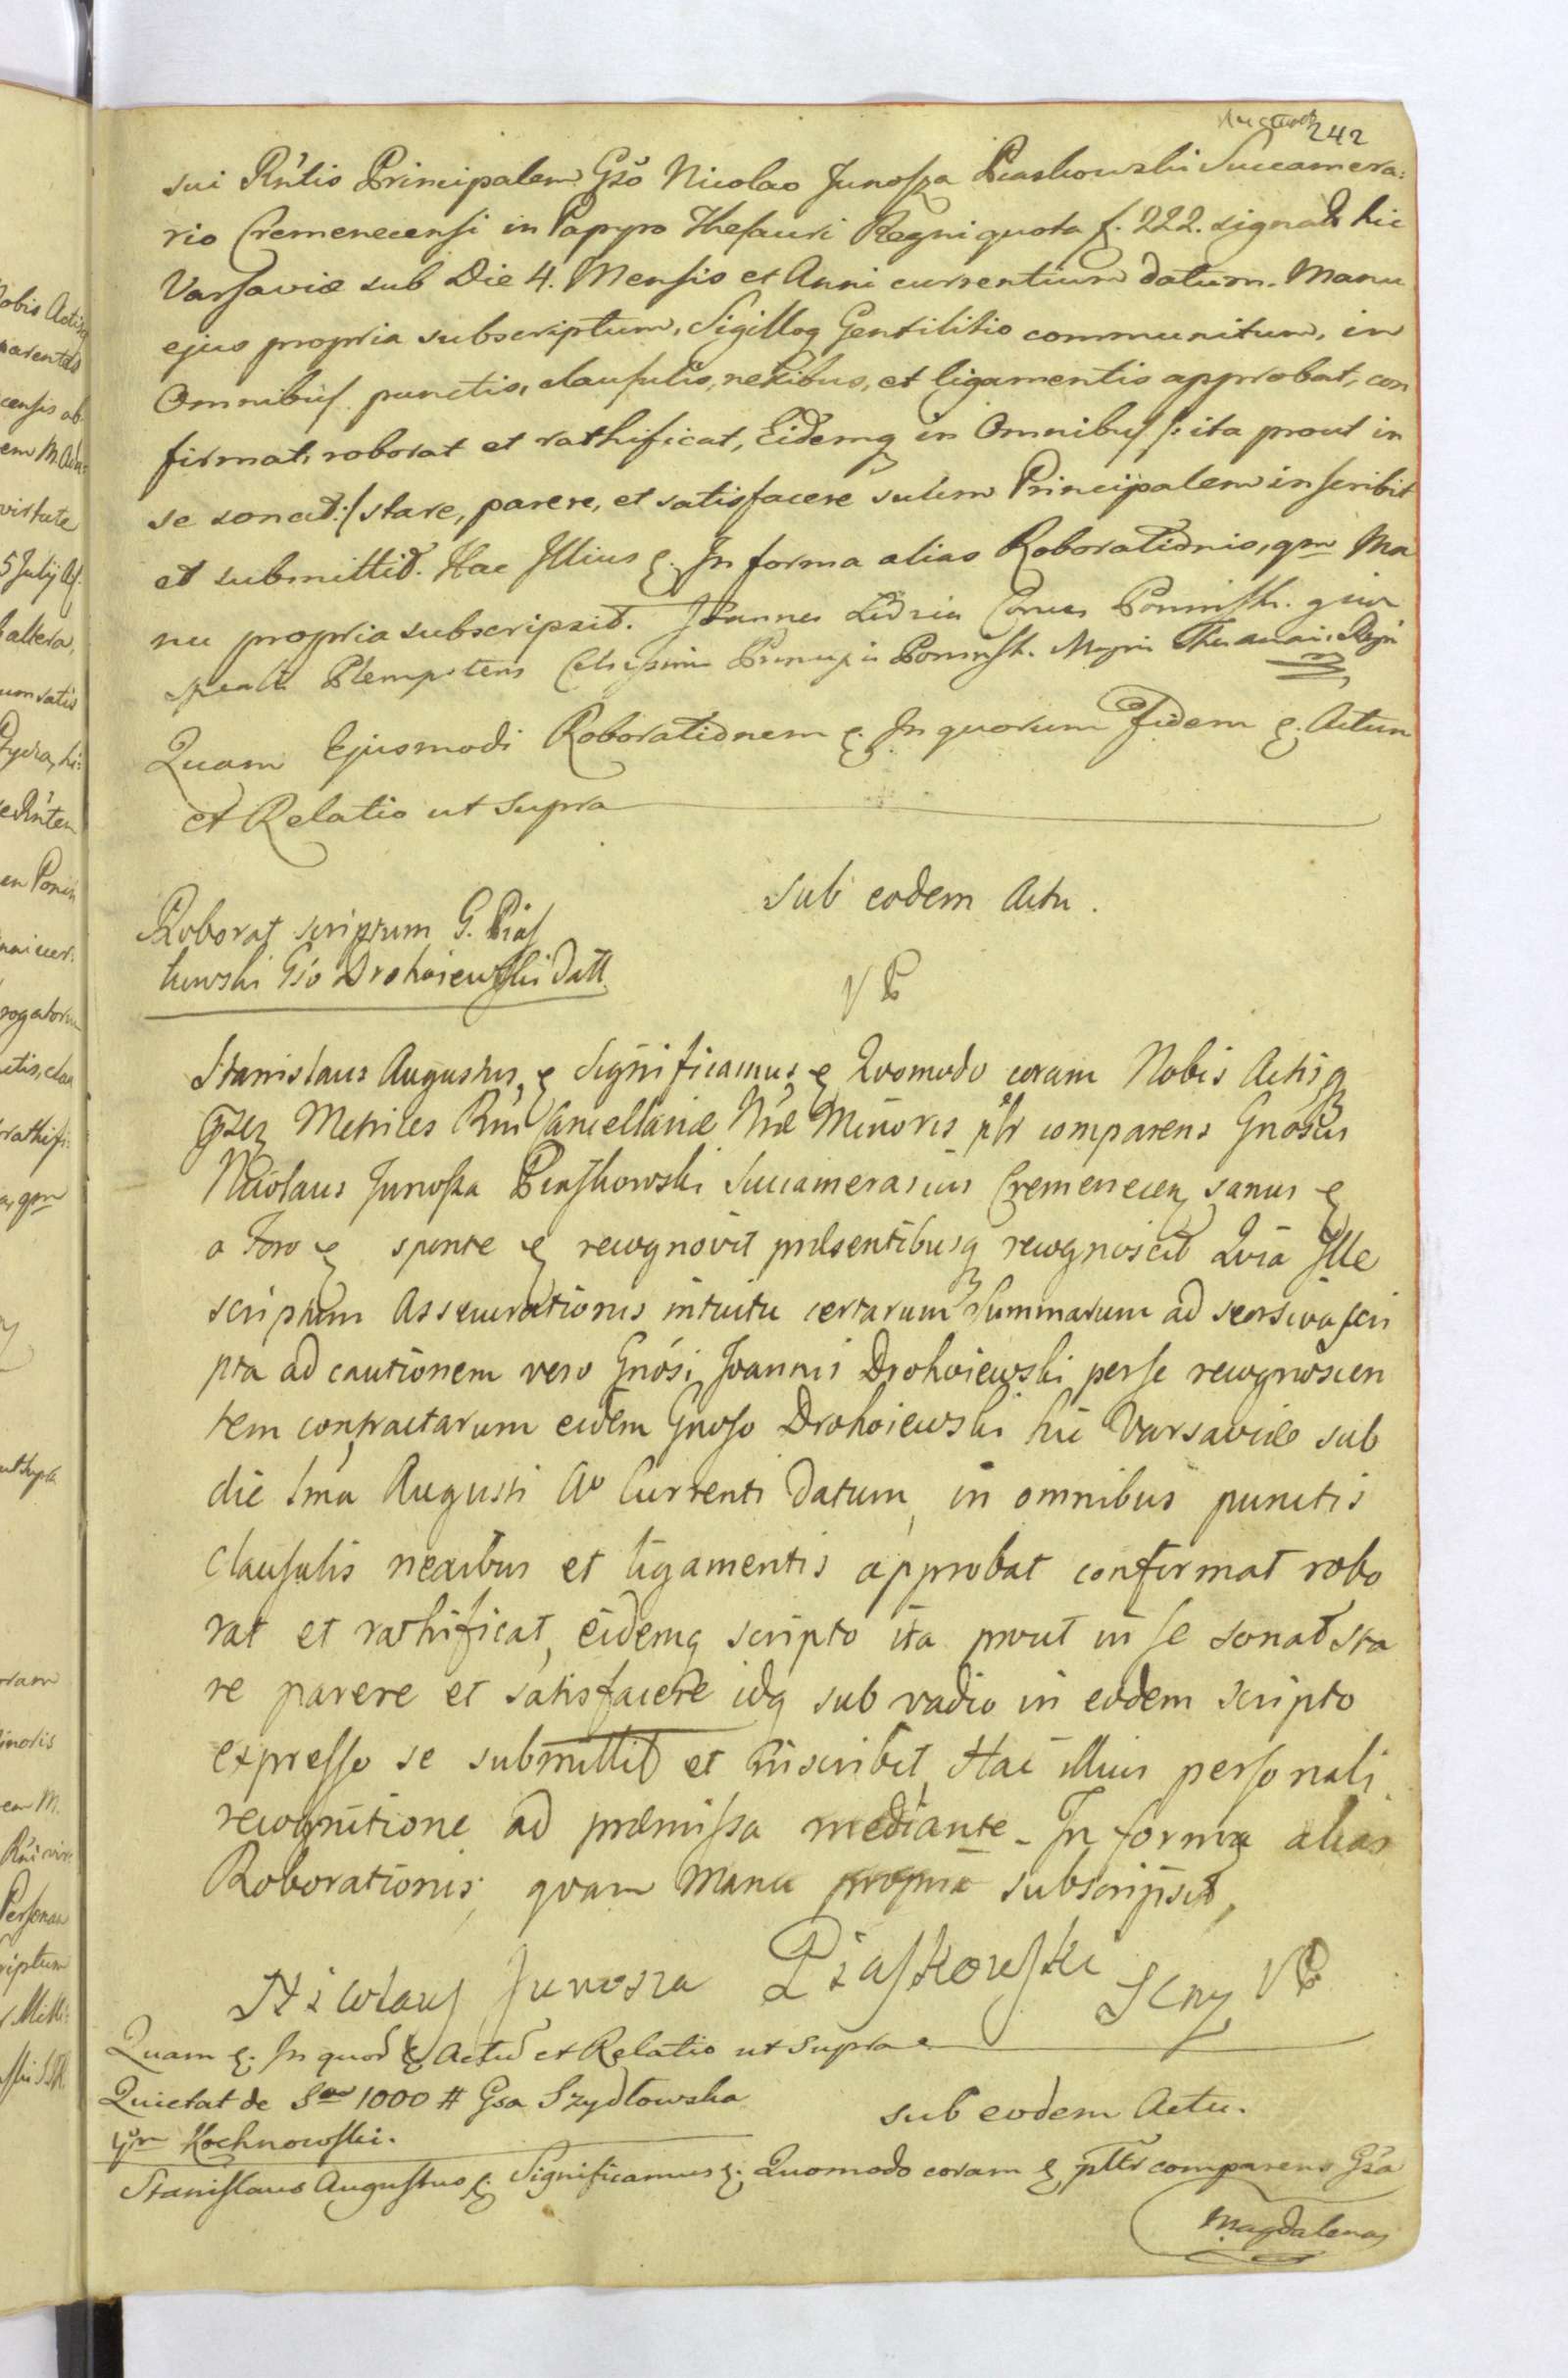 242
sui Rńtis Principalem Gsŏ Nicolao Junosza Piaskowski Succamera:
rio Cremenecensi in Papyro Thesauri Regni quota f. 222. signato hic
Varsaviæ sub Die 4. Mensis et Anni currentium datum. Manu
ejus propria subscriptum, Sigilloq Gentilitio communitum, in
Omnibus punctis, clausulis, nexibus, et ligamentis approbat, con
firmat, roborat et rathificat, Eidemq in Omnibus /: ita prout in
se sonat :/ stare, parere, et satisfacere suum Principalem inscribit
et submittit. Hac Illius &. In forma alias Roborationis, qm Ma
nu propria subscripsit. Joannes Comes Poninski
Plenipotens Celsissimi Principis Poninsk. Magni Thesaurarii Regni
Quam Ejusmodi Roborationem &. In quorum Fidem &. Actum
et Relatio ut Supra
sub eodem Actu.
Roborat scriptum G. Pias
kowski Gso Drohoiewski datt
Stanislaus Augustus, & Significamus & Quomodo coram Nobis Actisq
Metrices Rni Cancellariæ Nræ Minoris pltr comparens Gnosus
Nicolaus Junosza Piaskowski Succamerarius Cremenecen sanus &
a Foro & sponte & recognovit præsentibusq recognoscit Quia Ille
scriptum Assecurationis intuitu certarum summarum ad seorsiva scri
pta ad cautionem vero Gnósi Joannis Drohoiewski per se recognoscen
tem contractarum eidem Gnoso Drohoiewski hic Varsaviæ sub
die 1ma Augusti Ao Currenti datum, in omnibus punctis
clausulis nexibus et ligamentis approbat confirmat robo
rat et rathificat, eidemq scripto ita prout in se sonat sta
re parere et satisfacere idq sub vadio in eodem scripto
expresso se submittit et inscribit, Hac illius personali
recognitione ad præmissa mediante. In forma alias
Roborationis, quam Manu propria subscripsit,
Nicolaus Junosza Piaskowski
Quam &. In quor & Actum et Relatio ut Supra
Quietat de Sa 1000 # Gsa Szydłowska
Kochnowski.
sub eodem Actu.
Stanislaus Augustus &. Significamus &. Quomodo coram & pltr comparens Gsa
Magdalena